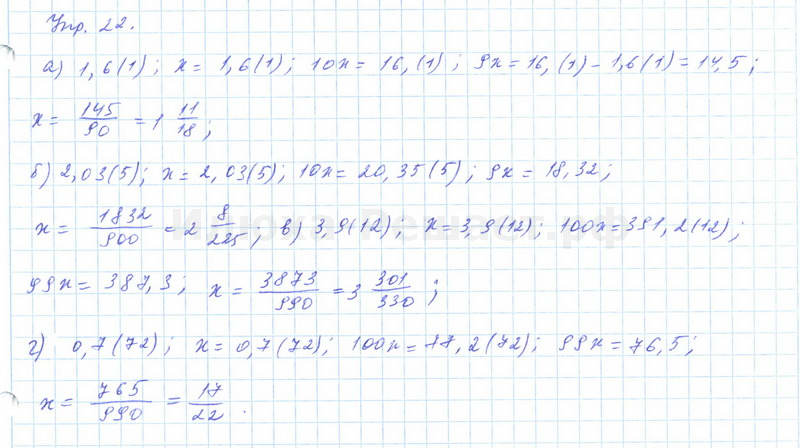 Упр. 22.
а) 1,6(1); x = 1,6(1); 10x = 16,(1); 9x = 16,(1) - 1,6(1) = 14,5;
x = 145/90 = 1 11/18;
б) 2,03(5); x = 2,03(5); 10x = 20,35(5); 9x = 18,32;
x = 1832/900 = 2 8/225; в) 3,9(12); x = 3,9(12); 100x = 391,2(12);
99x = 387,3; x = 3873/990 = 3 301/330;
г) 0,7(72); x = 0,7(72); 100x = 77,2(72); 99x = 76,5;
x = 765/990 = 17/22.